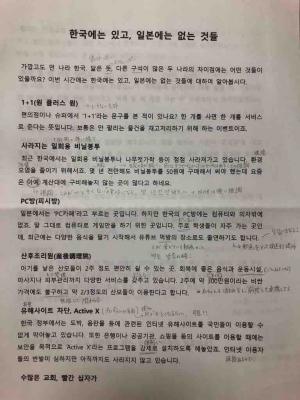 한국에는 있고, 일본에는 없는 것들
가깝고도 먼 나라 한국. 닮은 듯, 다른 구석이 많은 두 나라의 차이점에는 어떤 것들이
있을까요? 이번 시간에는 한국에는 있고, 일본에는 없는 것들에 대하여 알아봅시다.
1+1(원 플러스 원)
편의점이나 슈퍼에서 '1+1'라는 문구를 본 적이 있나요? 한 개를 사면 한 개를 서비스
로 준다는 뜻입니다. 보통은 안 팔리는 물건을 재고처리하기 위해 하는 이벤트이죠.
사라지는 일회용 비닐봉투
최근 한국에서는 일회용 비닐봉투나 나무젓가락 등이 점점 사라져가고 있습니다. 환경
오염을 줄이기 위해서죠. 몇 년 전만해도 비닐봉투를 50원에 구매해서 썼어야 했는데 요즘
은 아예 계산대에 구비해놓지 않는 곳이 많다고 하네요.
PC방(피시방)
일본에서는 'PC카페'라고 부르는 곳입니다. 하지만 한국의 PC방에는 컴퓨터와 의자밖에
없죠. 말 그대로 컴퓨터로 게임만을 하기 위한 곳입니다. 주로 학생들이 자주 가는 곳인
데, 최근에는 다양한 음식을 팔기 시작해서 유튜브 먹방의 장소로도 활용하기도 합니다.
산후조리원(産後調理院)
아기를 낳은 산모들이 2주 정도 편안히 쉴 수 있는 곳. 회복에 좋은 음식과 운동시설,
마사지나 피부관리까지 다양한 서비스를 갖추고 있습니다. 2주에 약 300만원이라는 비싼
가격에도 불구하고 약 2/3정도의 산모들이 이용한다고 합니다.
유해사이트 차단, Active X
한국 정부에서는 도박, 음란물 등에 관련된 인터넷 유해사이트를 국민들이 이용할 수
없게 막아놓고 있습니다. 또한 은행이나 공공기관, 쇼핑몰 등의 사이트를 이용할 때에는
보안을 목적으로 'Active X'라는 프로그램을 강제로 설치하도록 해놓았죠. 인터넷 이용자
들의 반발이 심하지만 아직까지도 사라지지 않고 있습니다.
수많은 교회, 빨간 십자가